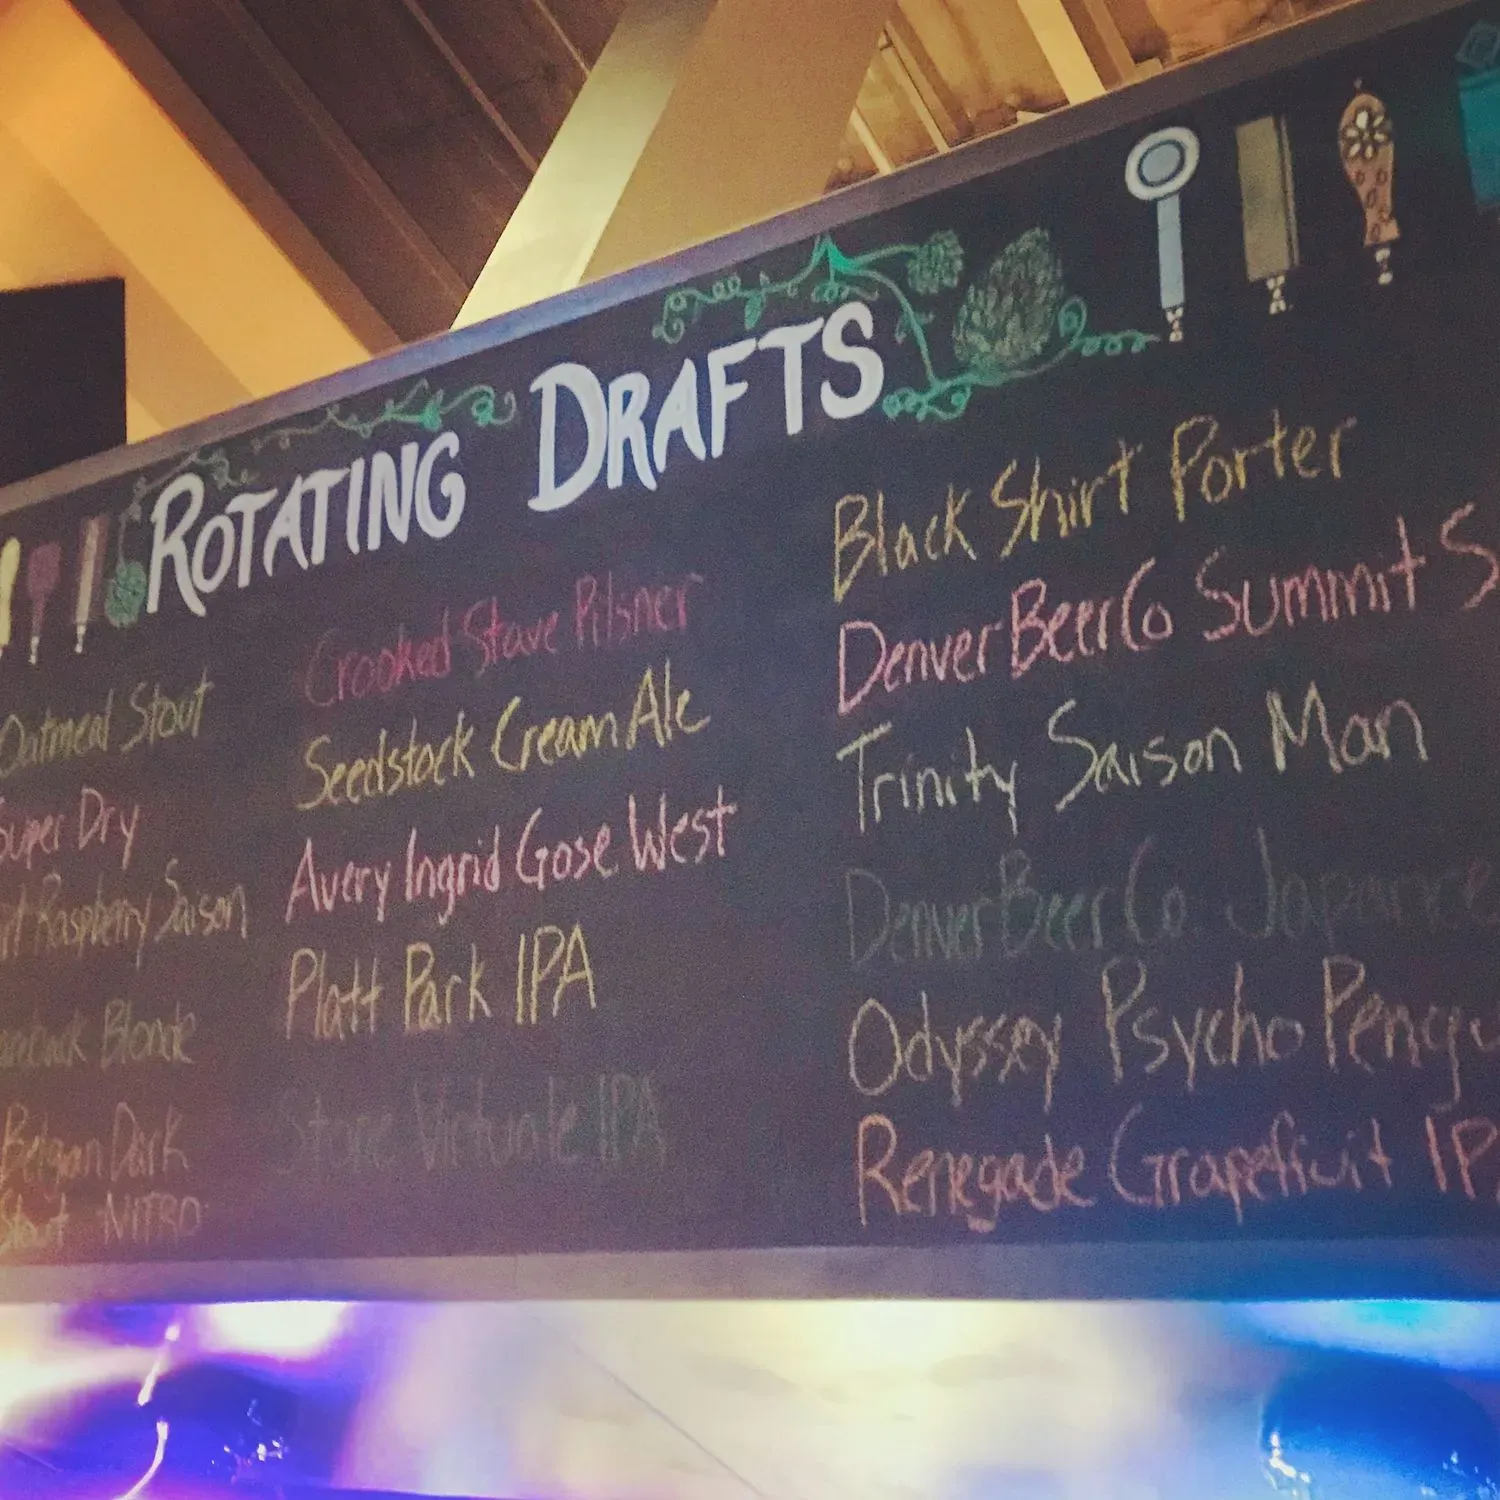 ROTATING DRAFTS
Oatmeal Stout
Super Dry
Raspberry Saison
Blonde
Belgan Dark
Stout NITRO
Crooked Stave Pilsner
Seedstock Cream Ale
Avery Ingrid Gose West
Platt Park IPA
Stone IPA
Black Shirt Porter
Denver Beer Co Summit S
Trinity Saison Man
Denver Beer Co Japanese
Odyssey Psycho Pengu
Renegade Grapefruit IP